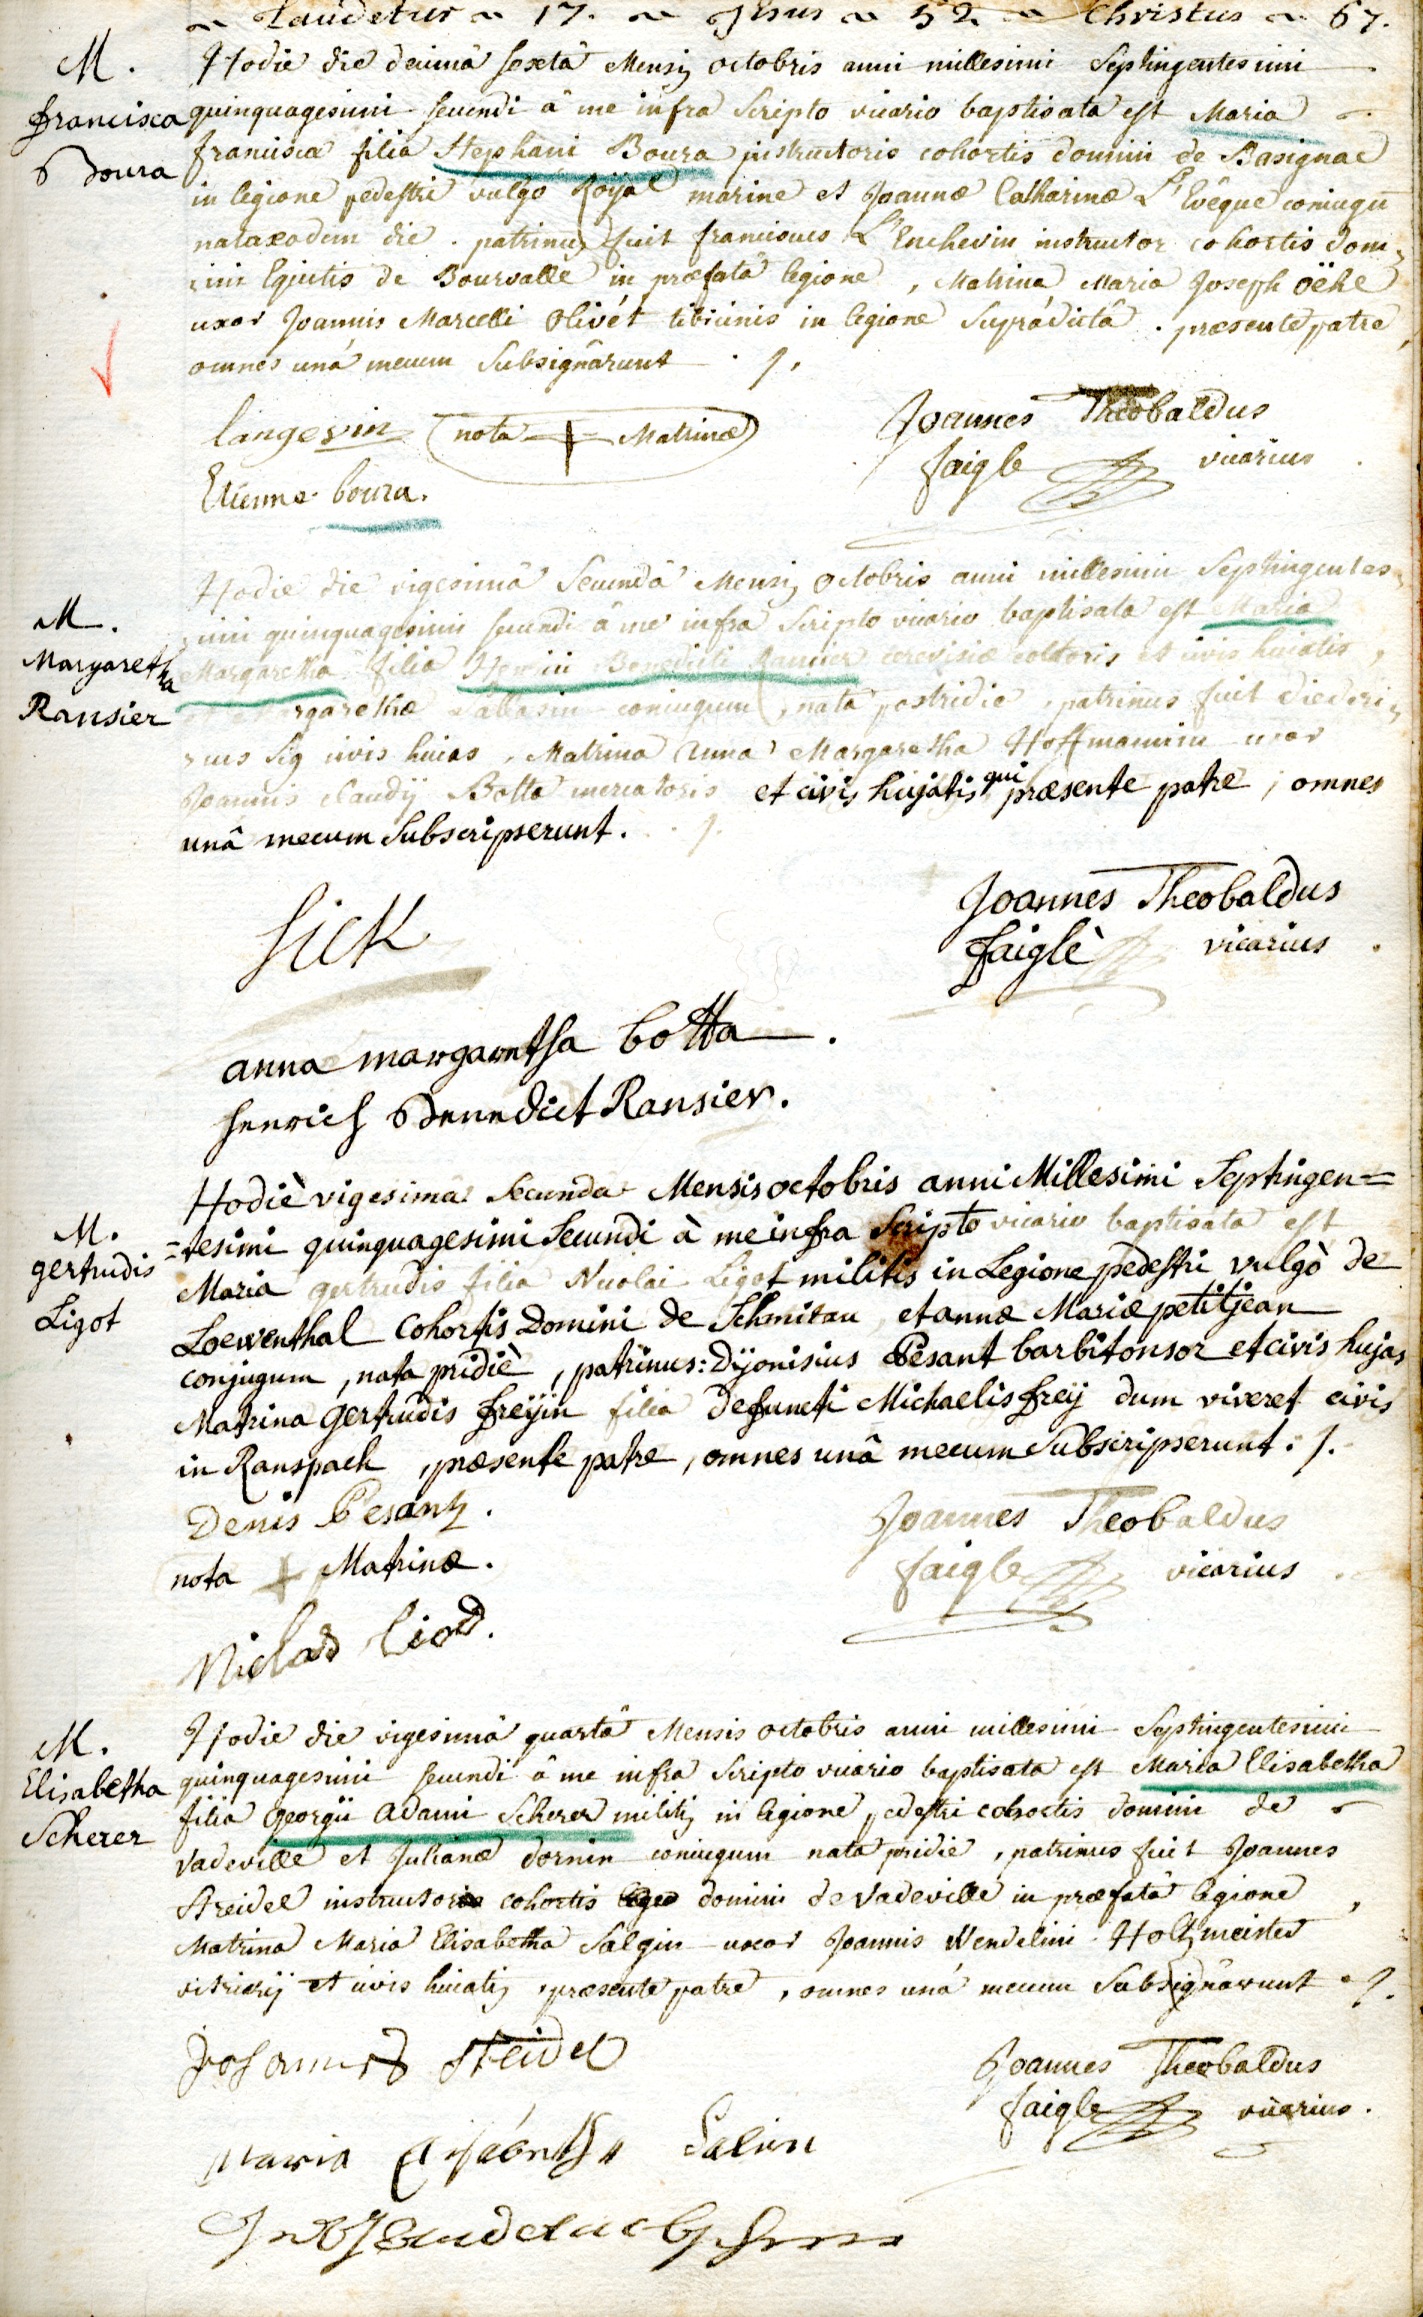 Laudetur 17. Jesus 52. Christus 67.
M.
Francisca
Boura
Hodie die decimâ sextâ Mensis octobris anni millesimi Septingentesimi
quinquagesimi secundi â me infra Scripto vicario baptisata est Maria
francisca filia Stephani Boura instructoris cohortis domini de Basignac
in legione pedestri vulgo Roijal marine et Joannæ Catharinæ L'Evêque coniugū
nata eodem die . patrinus fuit franciscus L'Enchevin instructor cohortis dom=
=ini Equitis de Boursalle in præfatâ legione , Matrina Maria Joseph öehe
uxor Joannis Marcelli Olivét tibicinis in legione Supradictâ . præsente patre,
omnes unâ mecum Subsignârunt ./.
langevin (nota + Matrinæ)
Etienne boura.
Joannes Theobaldus
faigle vicarius
M.
Margaretha
Ransier
Hodie die vigesimâ Secundâ Mensis Octobris anni millesimi Septingentes=
=imi quinquagesimi secundi â me infra Scripto vicario baptisata est Maria
Margaretha filia Henrici Benedicti Ransier cerevisiæ coctoris et civis huiatis,
et Margarethæ coniugum , nata postridie , patrinus fuit diederi=
=cus Sig civis huias , Matrina Anna Margaretha Hoffmannin uxor
Joannis Claudij Botta mercatoris et civis hujatis qui præsente patre , omnes
unâ mecum Subscripserunt. ./.
Sick
Joannes Theobaldus
faiglè vicarius .
anna margaretha botta .
henrich Benedict Ransier.
M.
gertrudis
Ligot
Hodiè vigesima Secunda Mensis octobris anni Millesimi Septingen=
=tesimi quinquagesimi Secundi à me infra Scripto vicario baptisata est
Maria gertrudis filia Nicolai Ligot militis in Legione pedestri vulgò de
Loewenthal Cohortis Domini de Schmitau et annæ Mariæ petitjean
conjugum , nata pridiè , patrinus: Dyonisius Pesant barbitonsor et civis hujas
Matrina gertrudis freÿin filia defuncti Michaelis freÿ dum viveret civis
in Ranspach , præsente patre , omnes unâ mecum Subscripserunt . /.
Denis Pesant .
nota + Matrinæ .
Niclas
Joannes Theobaldus
faigle vicarius .
M.
Elisabetha
Scherer
Hodie die vigesimâ quartâ Mensis octobris anni millesimi Septingentesimi
quinquagesimi secundi â me infra Scripto vicario baptisata est Maria Elisabetha
filia Georgii Adami Scherer militis in legione pedestri cohortis domini de
Vadeville et Julianæ dornin coniugum nata pridie , patrinus fuit Joannes
Streidel instructor cohortis domini de Vadeville in præfatâ legione ,
Matrina Maria Elisabetha Salgin uxor Joannis Wendelini Holtzmeister
vitriarij et civis huiatis , præsente patre , omnes unâ mecum Subsignârunt ./.
Johannes Steidel
Maria Elisabetha Salin
Joannes Theobaldus
faigle vicarius .